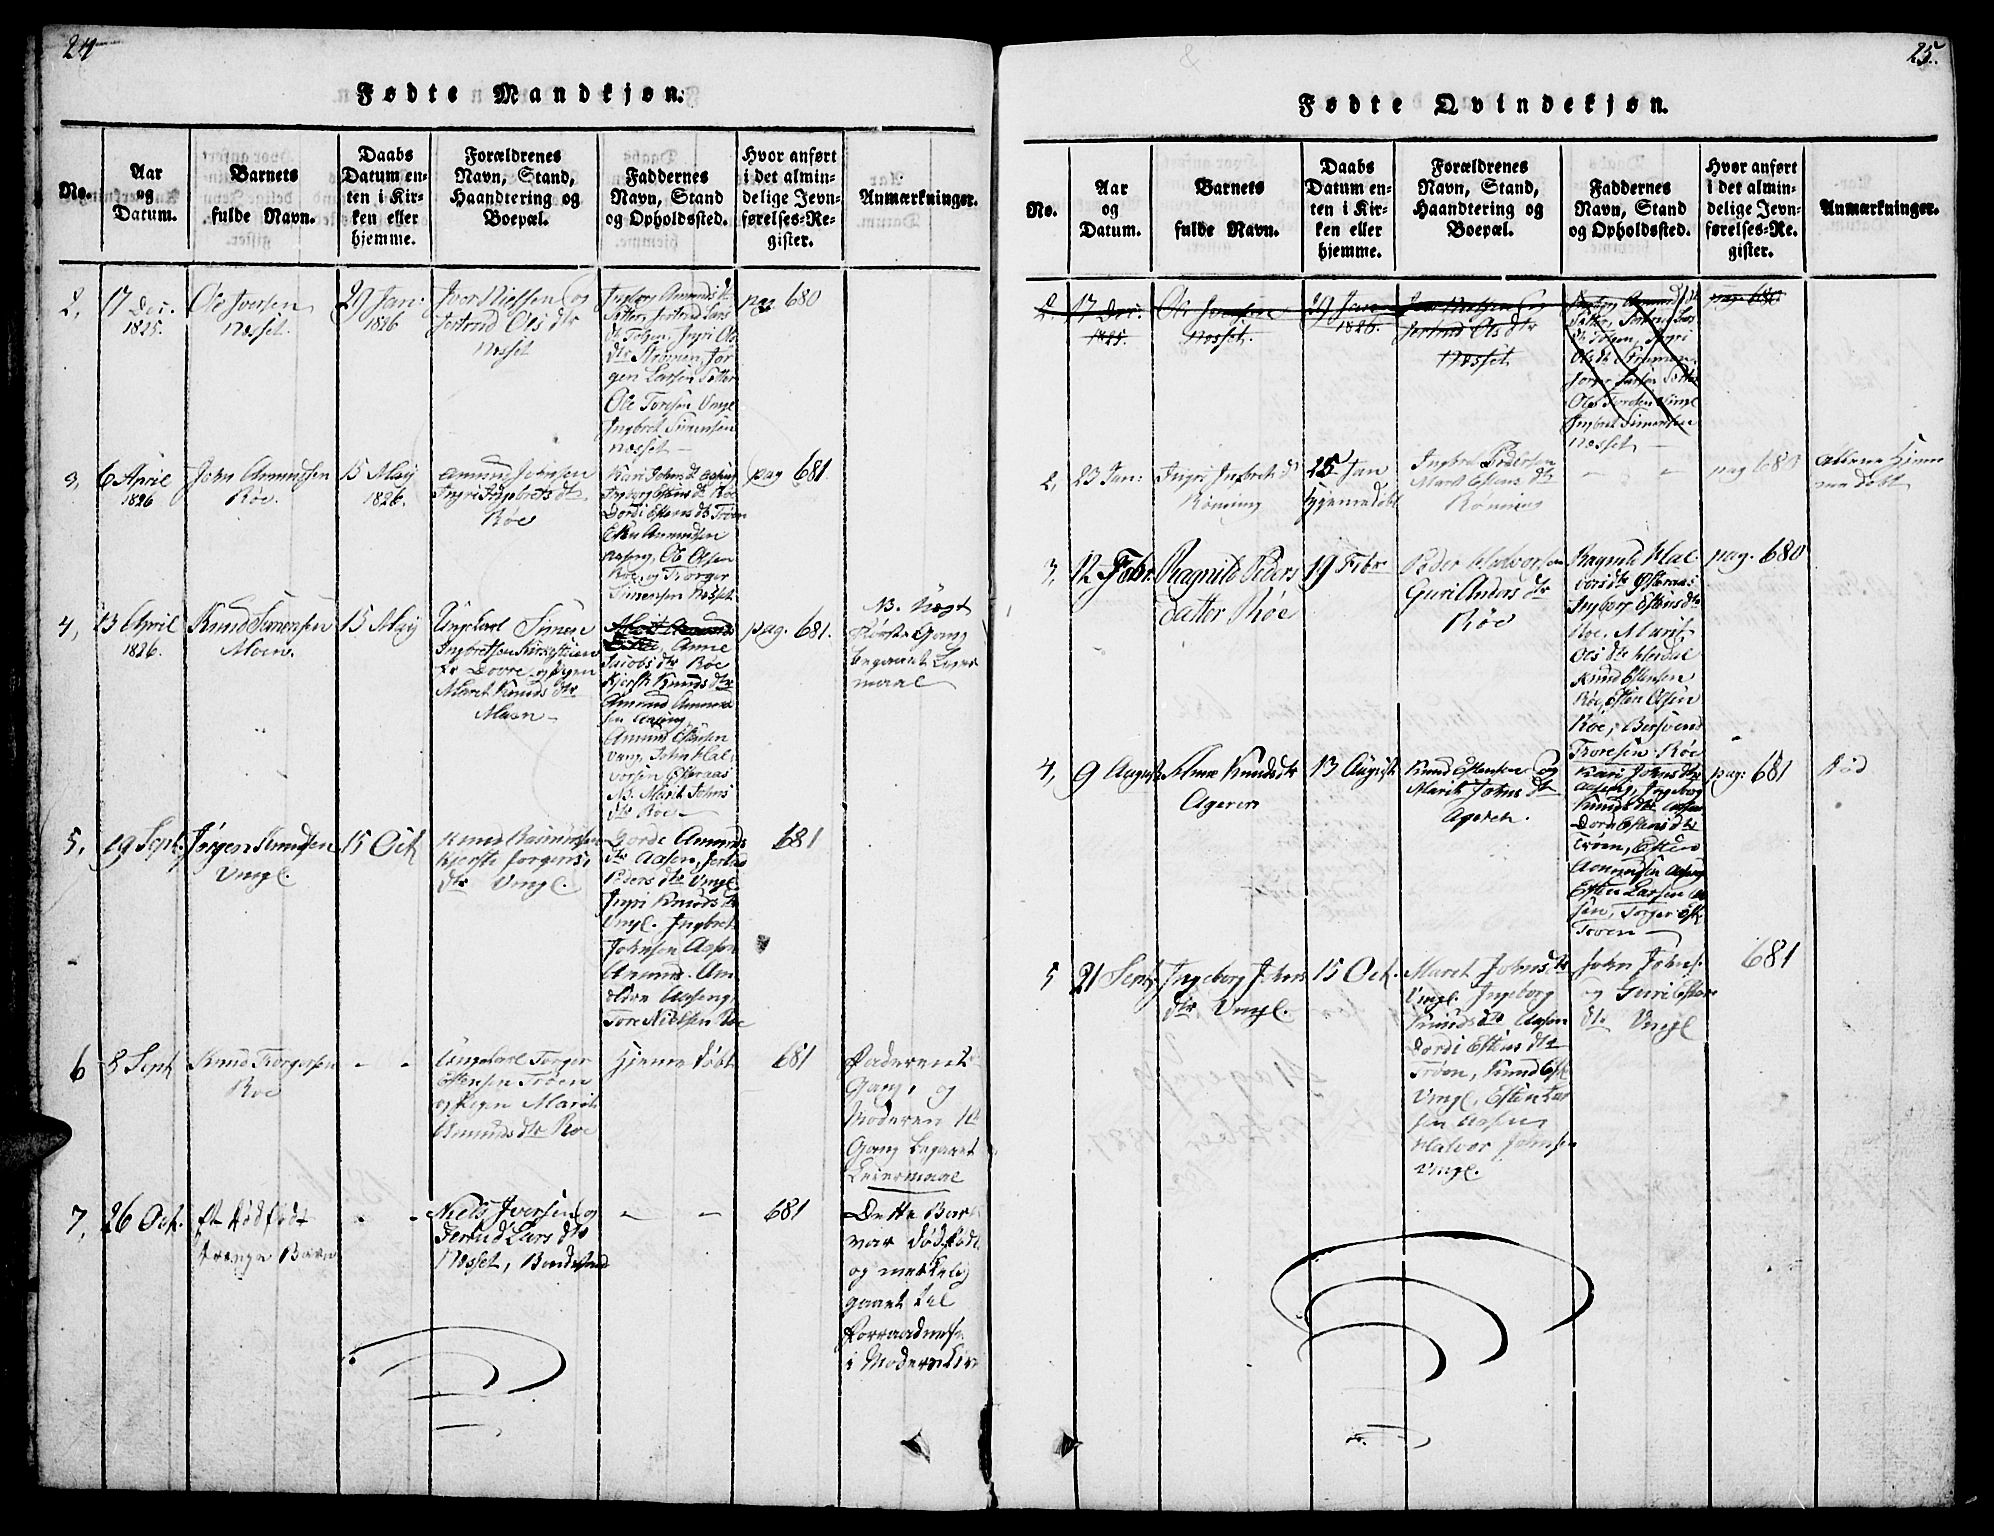 24
Fødte Mandkjøn.
No.
Aar
og
Datum.
Barnets
fulde Navn.
Daabs
Datum en-
ten i Kir-
ken eller
hjemme.
Forældrenes
Navn, Stand,
Haandtering og
Boepæl.
Faddernes
Navn, Stand
og Opholdssted.
Hvor anført
i det almin-
delige Jevn-
førelses-Re-
gister.
Anmærkninger.
2,
17 Dec.
1825.
Ole Iversen
Næsset.
29 Jan:
1826
Iver Nielsen og
Jertrud Ols dtr
Næsset
Ingbor Amunds d
Sætter, Jertrud Lars
dr Tolgen, Ingri Ols
dtr Strømen, Jør
gen Larsen Sætter
Ole Toresen Vingl
Ingbret Simensen
Næsset
pag 680
3,
6 April
1826
John Amundsen
Røe.
15 Maij
1826.
Amund Johnsen
Ingri Ingbrets dtr
Røe
Kari Johns dr Aaseng
Ingborg Estens dr Røe
Dordi Estens dtr Trøen
Esten Amundsen
Aaseng, Ole Olsen
Røe, og Torger
Simensen Næsset.
pag 681.
4,
13 April
1826.
Knud Simensen
Moen.
15 Maij
Ungkarl Simen
Ingbretsen
Dovre og Pigen
Maret Knuds dtr
Moen
Anne
Jacobs dtr Røe
Kjersti Knuds dtr
Amund Amund
sen Aaseng,
Amund Estensen
Vingl, John Hal
vorsen Østeraas
NB. Marit Johns
dtr Røe
pag. 681.
NB. Begge
første Gang
begaaet Leier
maal
5,
19 Sept:
Jørgen Knudsen
Vingl.
15 Oct
Knud Rasmussen
Kjersti Jørgens
dtr Vingl.
Gorde Amunds
dtr Aasen, Jertrud
Peders dtr Vingl
Ingri Knuds dtr
Vingl. Ingbret
Johnsen Aasen
Amund Am
Aaseng,
Tore Nielsen Røe
681
6
8 Sept
Knud Torgersen
Røe
- -
Ungkarl Torger
Estensen Trøen
og Pigen Marit
Amunds dtr Røe
Hjemme døbt
681
Faderen
Gang, og
Moderen 1te
Gang begaaet
Leiermaal
7,
26 Oct.
Et dødfødt
Drenge Barn
- -
Niels Iversen og
Jertrud Lars dtr
Næsset, Bondestand
- -
681
Dette Barn
var dødfødt
og
gaaet til
Forraadnelse
i Moders Liv
25.
Fødte Qvindekjøn.
No.
Aar
og
Datum.
Barnets
fulde Navn.
Daabs
Datum en-
ten i Kir-
ken eller
hjemme.
Forældrenes
Navn, Stand,
Haandtering og
Boepæl.
Faddernes
Navn, Stand
og Opholdssted.
Hvor anført
i det almin-
delige Jevn-
førelses-Re-
gister.
Anmærkninger.
2.
17 Dec:
1825.
Ole Iversen
Næsset.
29 Jan
1826.
Iver Nielsen og
Jertrud Ols dtr
Næsset
Ingborg Amunds dr
Sætter, Jertrud Lars
dr Tolgen, Ingri
Ols dr Strømen,
Jørgen Larsen Sætter
Ole Toresen Vingl
Ingbret Simensen
Næsset
pag. 680
2,
23 Jan:
Ingri Ingbrets dr
Rønning
25 Jan
hjemmedøbt
Ingbret Pedersen
Marit Estens dtr
Rønning
- -
pag 680
Allene hjem
me døbt
3,
12 Febr.
Ragnild Peders
datter Røe
19 Febr
Peder Halvorsen
Guri Anders dtr
Røe
Ragnild Hal-
vors dtr Østeraas
Ingborg Estens dtr
Røe. Marit
Ols dtr
Knud Estensen
Røe, Esten Olsen
Røe, Bersvend
Toresen Røe
pag. 680
4,
9 August
Anne Knuds dtr
Ageren
13 August
Knud Estensen og
Marit Johns dr
Ageren.
Kari Johns dtr
Aaseng, Ingeborg
Knuds dtr Aasen
Dordi Estens dtr
Trøen, Esten
Amundsen Aaseng
Esten Larsen Aa
sen, Torger Est.
Trøen
pag: 681
Død
5
21 Sept:
Ingeborg Johns
dtr Vingl.
15 Oct.
Maret Johns dtr
Vingl. Ingeborg
Knuds dtr Aasen
Dordi Estens dtr
Trøen, Knud Est.
Vingl, Esten Lar
sen Aasen,
Halvor Johnsen
Vingl.
John Johns.
og Guri Estens
dr. Vingl
681